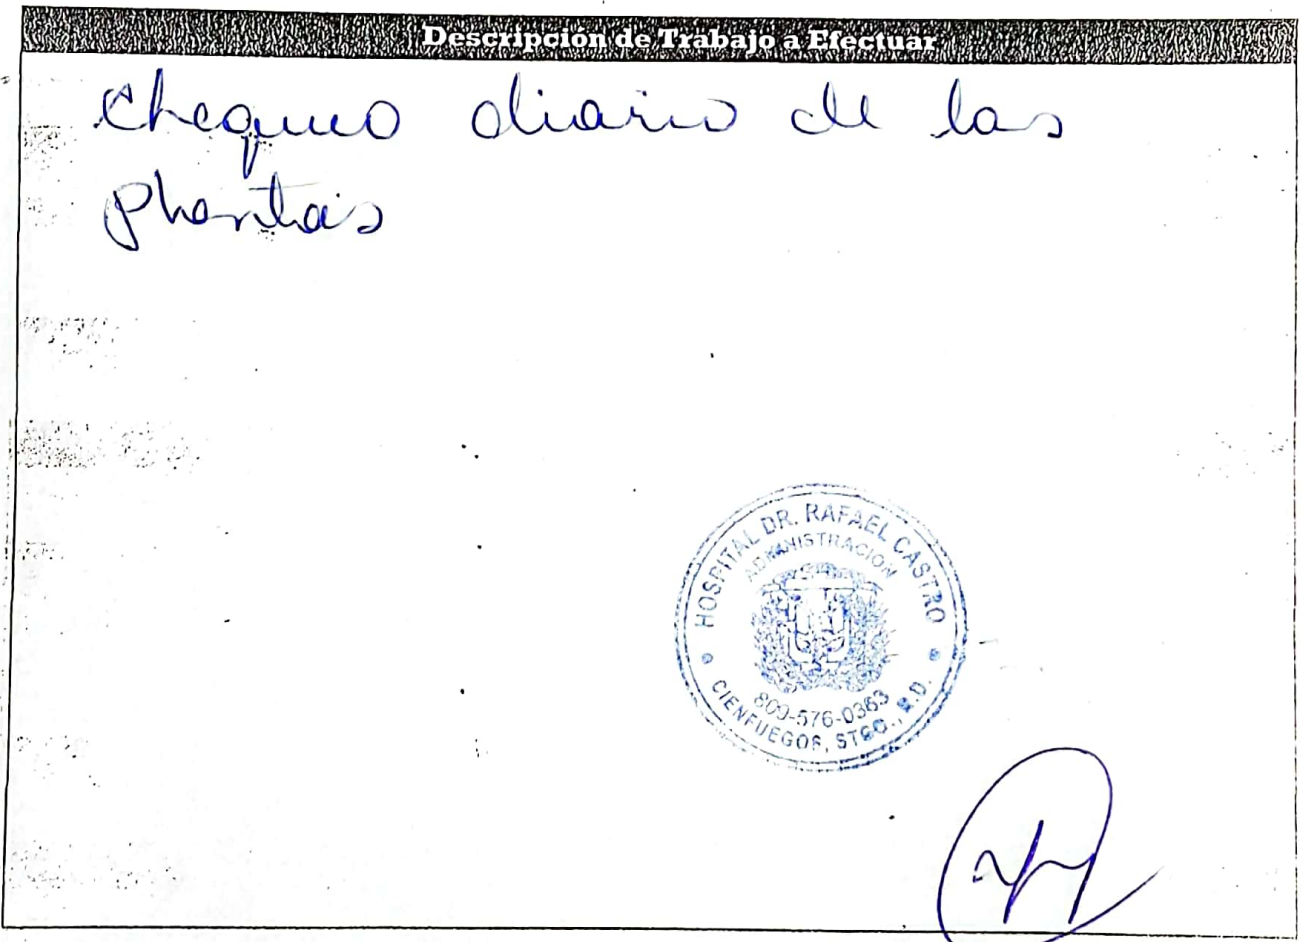 Descripción de Trabajo a Efectuar
Chequeo diario de las
Plantas
HOSPITAL DR. RAFAEL CASTRO
ADMINISTRACION
809-576-0363
CIENFUEGOS, STGO., R.D.